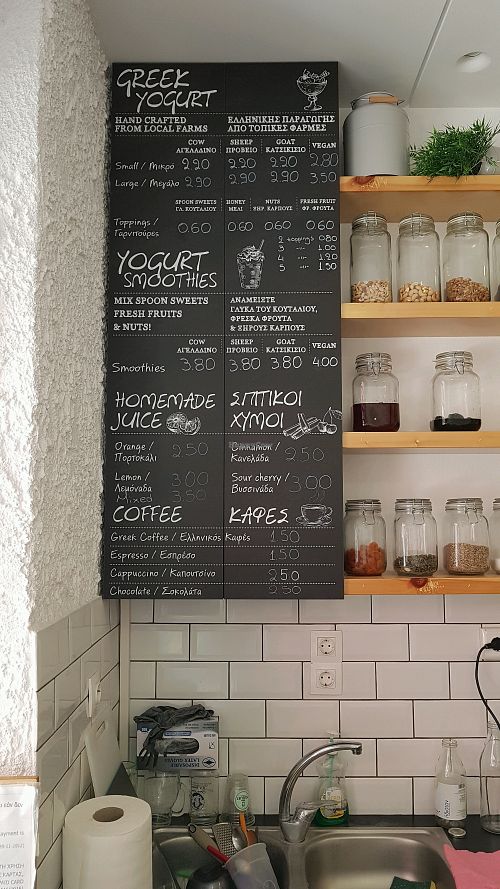 GREEK
YOGURT
HAND CRAFTED
FROM LOCAL FARMS
ΕΛΛΗΝΙΚΗΣ ΠΑΡΑΓΩΓΗΣ
ΑΠΟ ΤΟΠΙΚΕΣ ΦΑΡΜΕΣ
COW SHEEP GOAT VEGAN
ΑΓΕΛΑΔΙΝΟ ΠΡΟΒΕΙΟ ΚΑΤΣΙΚΙΣΙΟ
Small / Μικρό 2,20 2,20 2,20 2,80
Large / Μεγάλο 2,90 2,90 2,90 3,50
SPOON SWEETS HONEY NUTS FRESH FRUIT
ΓΛ. ΚΟΥΤΑΛΙΟΥ ΜΕΛΙ ΞΗΡ. ΚΑΡΠΟΥΣ ΦΡ. ΦΡΟΥΤΑ
Toppings /
Γαρνιτούρες 0,60 0,60 0,60 0,60
2 toppings 0.80
3 1.00
4 1.20
5 1.50
YOGURT
SMOOTHIES
MIX SPOON SWEETS
FRESH FRUITS
& NUTS!
ΑΝΑΜΕΙΞΤΕ
ΓΛΥΚΑ ΤΟΥ ΚΟΥΤΑΛΙΟΥ,
ΦΡΕΣΚΑ ΦΡΟΥΤΑ
& ΞΗΡΟΥΣ ΚΑΡΠΟΥΣ
COW SHEEP GOAT VEGAN
ΑΓΕΛΑΔΙΝΟ ΠΡΟΒΕΙΟ ΚΑΤΣΙΚΙΣΙΟ
Smoothies 3.80 3.80 3.80 4.00
HOMEMADE
JUICE
ΣΠΙΤΙΚΟΙ
ΧΥΜΟΙ
Orange /
Πορτοκάλι 2,50
Cinnamon /
Κανελάδα 2,50
Lemon /
Λεμονάδα 3,00
Mixed 3,50
Sour cherry /
Βυσσινάδα 3,00
COFFEE
ΚΑΦΕΣ
Greek Coffee / Ελληνικός Καφές 1.50
Espresso / Εσπρέσο 1.50
Cappuccino / Καπουτσίνο 2.50
Chocolate / Σοκολάτα 2.50
DISPOSABLE
LATEX GLOVES